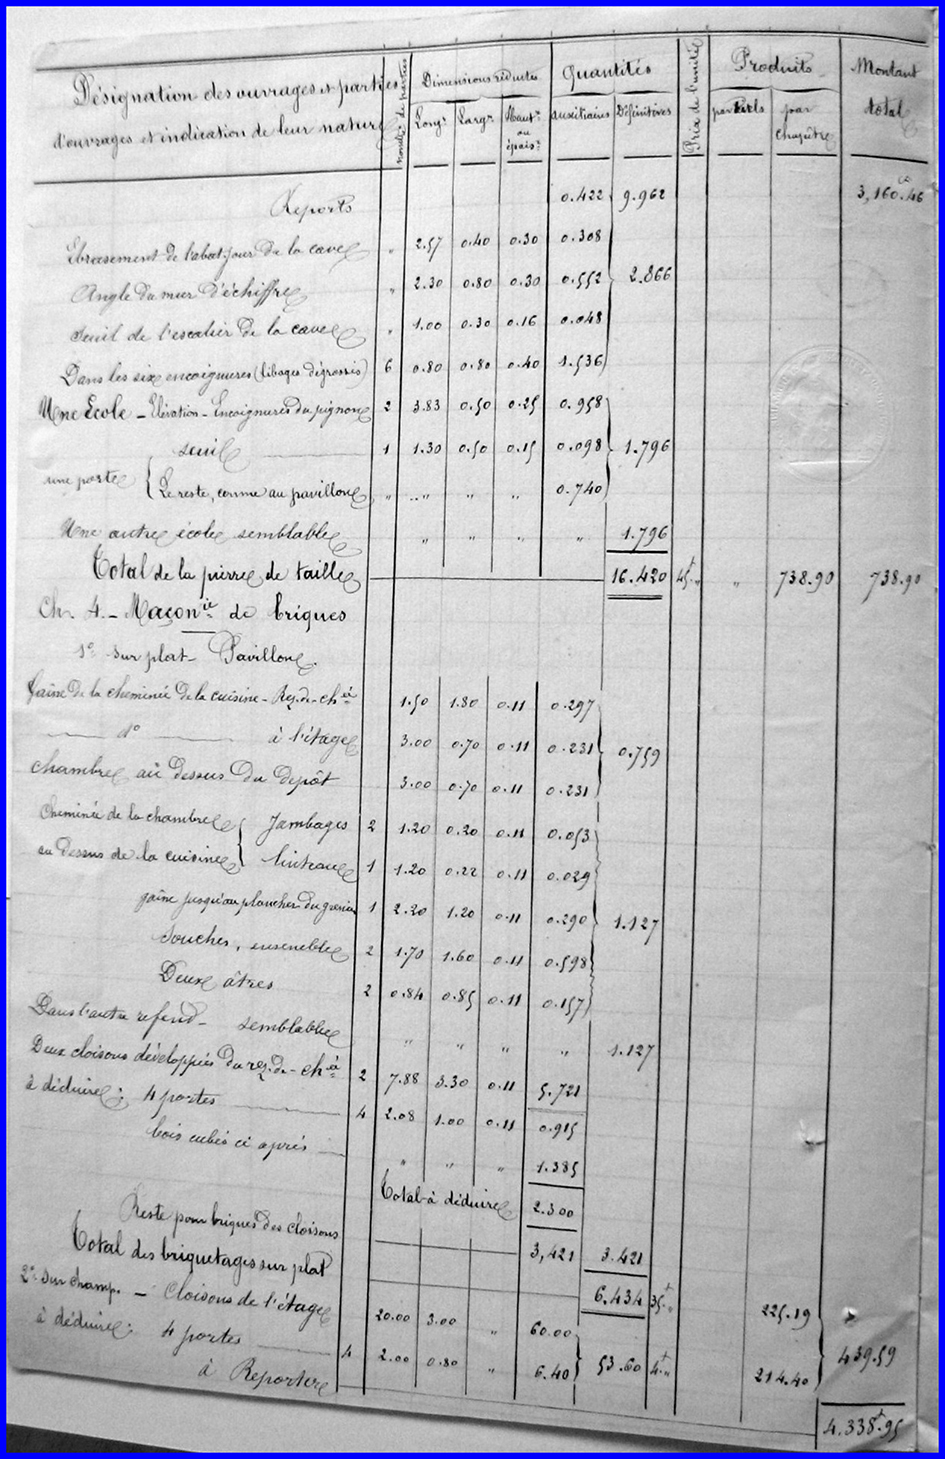 Désignation des ouvrages et parties d'ouvrages et indication de leur nature | nombre de parties | Dimensions réduites | Quantités | Prix de l'unité | Produits | Montant total
Longr Largr Hautr ou épaisr | auxiliaires Définitives | partiels par chapitre
Reports 0.422 9.962 3,160.46
Ebrasement de l'abat-jour de la cave " 2.57 0.40 0.30 0.308
Angle du mur d'échiffre " 2.30 0.80 0.30 0.552 2.866
Seuil de l'escalier de la cave " 1.00 0.30 0.16 0.048
Dans les six encoignures (libages dégrossis) 6 0.80 0.80 0.40 1.536
Une Ecole - Elévation - Encoignures du pignon 2 3.83 0.50 0.25 0.958
seuil 1 1.30 0.50 0.15 0.098 1.796
une porte { Le reste, comme au pavillon " " " " 0.740
Une autre école semblable " " " " 1.796
Total de la pierre de taille 16.420 45f " " 738.90 738.90
Ch. 4. - Maçonie de briques
1o sur plat - Pavillon.
Gaine de la cheminée de la cuisine - Rez-de-chée 1.50 1.80 0.11 0.297
do à l'étage 3.00 0.70 0.11 0.231 0.759
chambre au dessus du dépôt 3.00 0.70 0.11 0.231
Cheminée de la chambre { Jambages 2 1.20 0.20 0.11 0.053
au dessus de la cuisine { linteau 1 1.20 0.22 0.11 0.029
gaine jusqu'au plancher du grenier 1 2.20 1.20 0.11 0.290 1.127
Souches, ensemble 2 1.70 1.60 0.11 0.598
Deux âtres 2 0.84 0.85 0.11 0.157
Dans l'autre refend - semblable " " " " 1.127
Deux cloisons développées du rez-de-chée 2 7.88 3.30 0.11 5.721
à déduire: 4 portes 4 2.08 1.00 0.11 0.915
bois cubés ci après " " " 1.385
Total à déduire 2.300
Reste pour briques des cloisons 3,421 3.421
Total des briquetages sur plat 6.434 35f " 225.19
2o sur champ. - Cloisons de l'étage 20.00 3.00 " 60.00
à déduire: 4 portes 4 2.00 0.80 " 6.40 53.60 4f " 214.40 439.59
à Reporter 4.338f.95